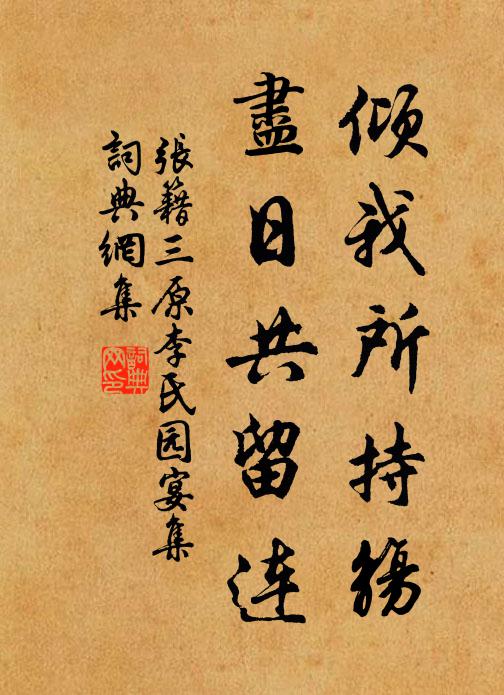 傾我所持觴
盡日共留連
張籍三原李氏园宴集
詞典網集
詞典網印